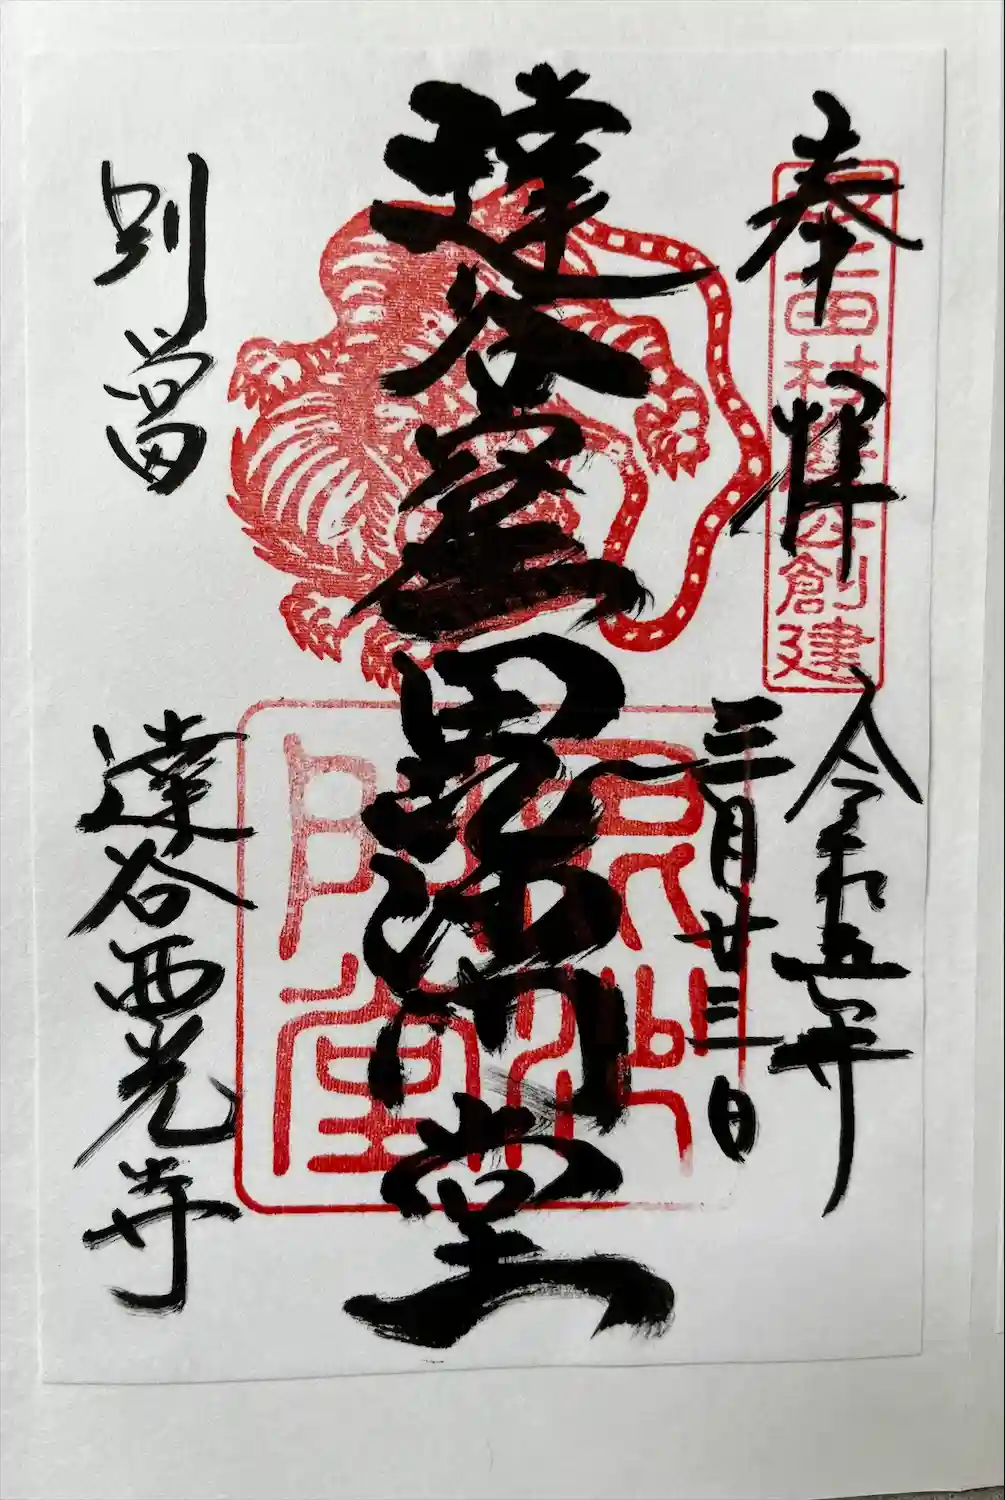 奉拝
坂上田村麿公創建
令和五年
三月廿三日
達谷窟毘沙門堂
毘沙門堂
別當
達谷西光寺